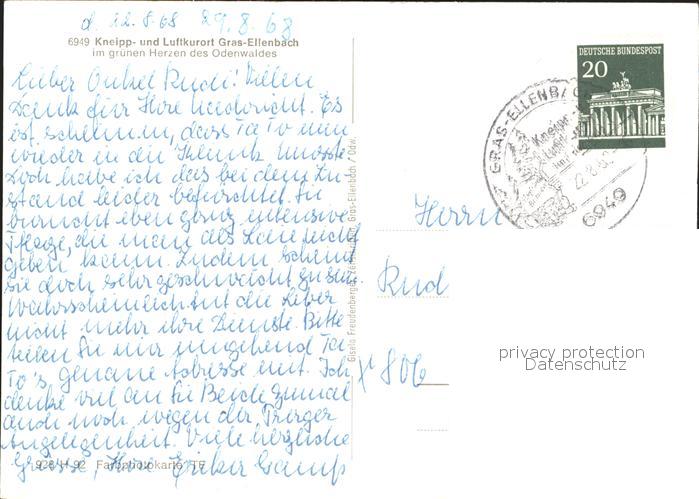 d. 22.8.68 29.8.68
6949 Kneipp- und Luftkurort Gras-Ellenbach
im grünen Herzen des Odenwaldes
Lieber Onkel Rudi! Vielen
Dank für Ihre Nachricht. Es
ist schlimm, dass Ta To nun
wieder in die Klinik musste.
Doch habe ich das bei dem Zu-
stand leider befürchtet. Sie
braucht eben ganz intensive
Pflege, die man als Laie nicht
geben kann. Zudem scheint
sie doch sehr geschwächt zu sein.
Wahrscheinlich tut die Leber
nicht mehr ihre Dienste. Bitte
teilen Sie mir umgehend Ta
To's genaue Adresse mit. Ich
denke viel an Sie Beide zumal
auch noch wegen der
Angelegenheit. Viele herzliche
Grüsse, Ihre
928 H 92 Farbphotokarte TE
Gisela Freudenberger, Gras-Ellenbach / Odw.
DEUTSCHE BUNDESPOST
20
GRAS-ELLENBACH
Kneipp-
22.8.68
6949
Herrn
Rud
X 806
privacy protection
Datenschutz